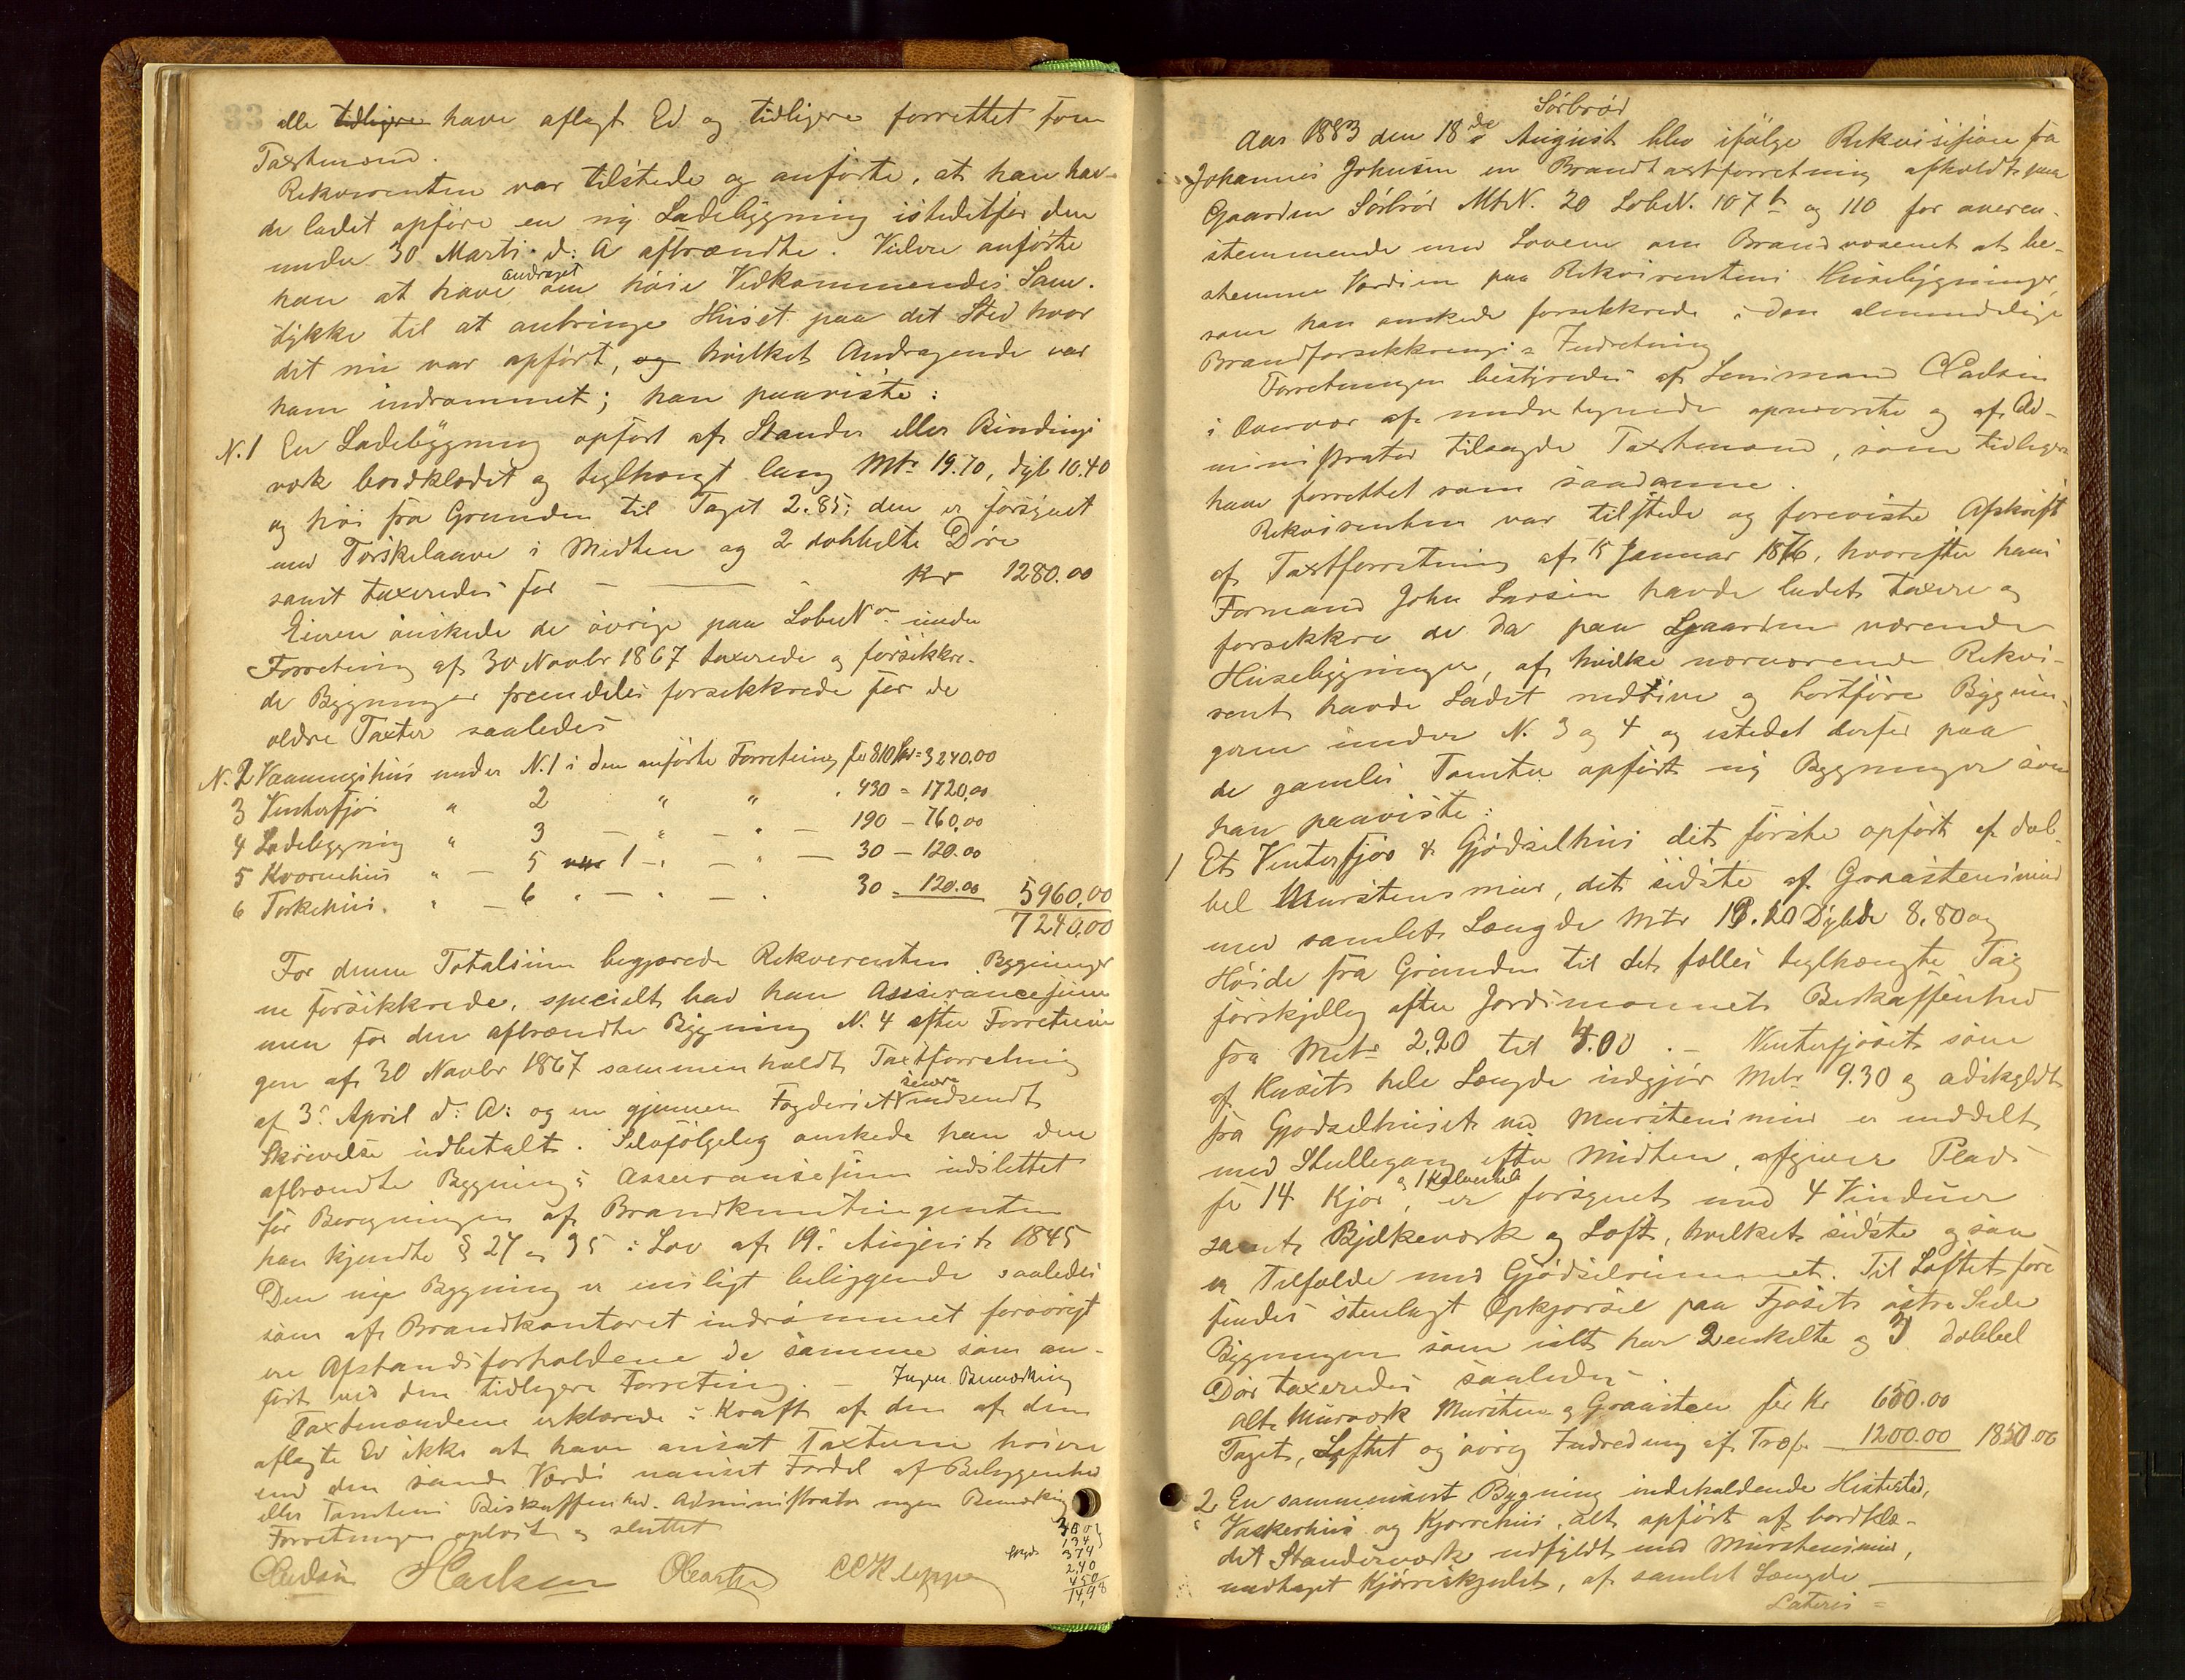 alle tidligere have aflagt Ed og tidligere forrettet som
Taxtmænd.
Rekvirenten var tilstede og anførte, at han hav-
de ladet opføre en ny Ladebygning istedetfor den
under 30 Marti d: A afbrændte. Videre anførte
andraget
han at have om høie Vedkommendes Sam-
tykke til at anbringe Huset paa det Sted hvor
det nu var opført, og hvilket Andragende var
ham indrømmet; han paaviste:
N. 1 En Ladebygning opført af Stander eller Bindings
værk bordklædet og teglhængt lang Mtr 19.70, dyb 10.40
og høi fra Grunden til Taget 2.85; den er forsynet
med Tærskelaave i Midten og 2 dobbelte Døre
samt taxeredes for — — Kr 1280.00
Eieren ønskede de øvrige paa LøbeNo under
Forretning af 30 Novbr 1867 taxerede og forsikkre-
de Bygninger fremdeles forsikkrede for de
ældre Taxter saaledes
N. 2 Vaaningshus under N. 1 i den anførte Forretning for 810 Spd = 3240.00
3 Vinterfjøs " 2 " " 430 = 1720,00
4 Ladebygning " 3 — " — " — 190 — 760,00
5 Kværnehus " — 5 — " — " — 30 — 120.00
6 Tørkehus " — 6 " — " — " 30 = 120.00 5960,00
7240,00
For denne Totalsum begjærede Rekvirenten Bygninger
ne forsikkrede, specielt bad han Assurancesum
men for den afbrændte Bygning N. 4 efter Forretnin
gen af 30 Novbr 1867 sammenholdt Taxtforretning
senere
af 3. April d: A: og en gjennem Fogderiet indsendt
Skrivelse udbetalt. Selvfølgelig ønskede han den
afbrændte Bygnings Assuransesum udslettet
før Beregningen af Brandkontingenten
han kjendte § 27 og 35 i Lov af 19. August 1845
Den nye Bygning er ensligt beliggende saaledes
som af Brandkontoret indrømmet forøvrigt
ere Afstandsforholdene de samme som an-
ført ved den tidligere Forretning. — Ingen Bemærkning
Taxtmændene erklærede i Kraft af den af dem
aflagte Ed ikke at have ansat Taxterne høiere
end den sande Værdi uanset Fordel af Beliggenhed
eller Tomtens Beskaffenhed. Administrator ingen Bemærkning
Forretningen oplæst og sluttet
374
2,40
450
14,98
Sørbrød
Aar 1883 den 18de August blev ifølge Rekvisision fra
Johannes Johnsen en Brandtaxtforretning afholdt paa
Gaarden Sørbrød MtN. 20 LøbeN. 107 b og 110 for overen-
stemmende med Loven om Brandvæsenet at be-
stemme Værdien paa Rekvirentens Husebygninger,
som han ønskede forsikkrede i den almindelige
Brandforsikkrings Indretning
Forretningen bestyredes af Lensmand
i Overvær af undertegnede opnævnte og af Ad-
ministrator tilsagde Taxtmænd, som tidligere
have forrettet som saadanne.
Rekvirenten var tilstede og foreviste Afskrift
af Taxtforretning af 15 Januar 1876, hvorefter hans
Formand John Larsen havde ladet taxere og
forsikkre de da paa Gaarden værende
Husebygninger, af hvilke nærværende Rekvi-
rent havde Ladet nedrive og bortføre Bygnin-
gerne under N. 3 og 4 og istedet derfor paa
de gamle Tomter opført ny Bygninger som
han paaviste:
1 Et Vinterfjøs & Gjødselhus det første opført af dob-
bel Murstensmur, det sidste af Graastensmur
med samlet Længde Mtr 18.20 Dybde 8.80 og
Høide fra Grunden til det fælles teglhængte Tag
forskjellig efter Jordsmonnets Beskaffenhed
fra Mtr 2.20 til 4.00. — Vinterfjøset som
af Husets hele Længde udgjør Mtr 9.30 og adskildt
fra Gjødselhuset med Murstensmur er inddelt
med Stullegang efter Midten, afgiver Plads
og 1 Kalvestel
for 14 Kjør, er forsynet med 4 Vinduer
samt Bjelkeværk og Loft, hvilket sidste ogsaa
er Tilfælde med Gjødselrummet. Til Loftet fore
findes stenlagt Opkjørsel paa Fjøsets østre Side
Bygningen som ialt har 2 enkelte og 3 dobbel
Dør taxeredes saaledes
Alt Murværk Mursten og Graasten for Kr 650.00
Taget, Loftet og øvrig Indredning af Træ for — 1200.00 1850.00
2 En sammensat Bygning indeholdende Hestested,
Vaskerhus og Kjørrehus, alt opført af bordklæ-
det Standerværk udfyldt med Murstensmur,
undtaget Kjørreskjulet, af samlet Længde —
Lateris =